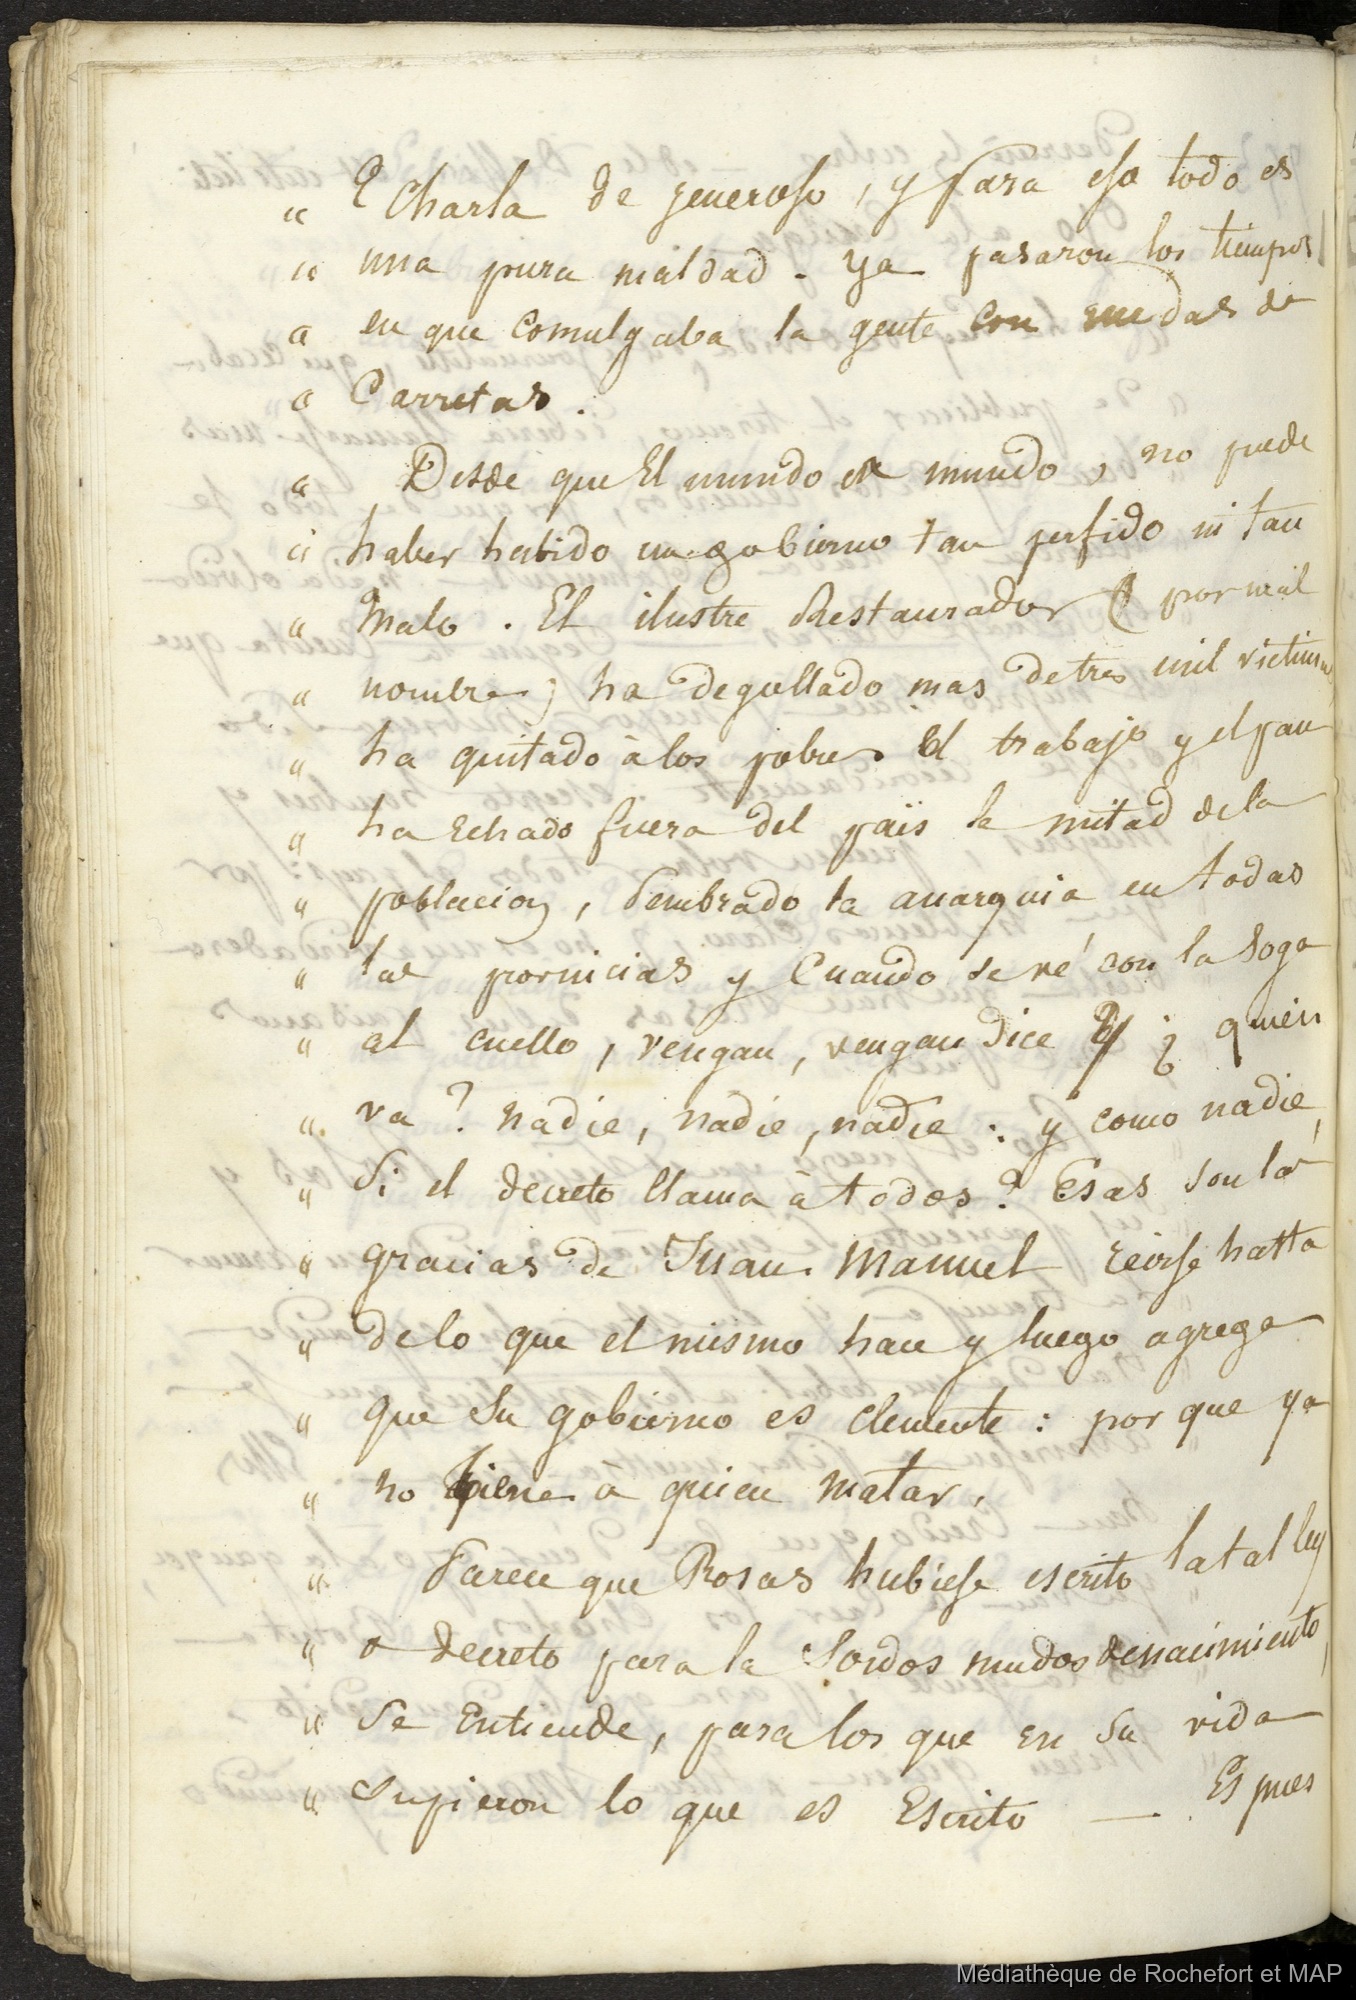 " Echarla de generoso, y para eso todo es
" una pura maldad. Ya pasaron los tiempos
" en que comulgaba la gente con ruedas de
" Carretas.
" Desde que El mundo es mundo, no puede
" haber habido un gobierno tan perfido ni tan
" Malo. El ilustre Restaurador ( por mal
" nombre) ha degollado mas de tres mil victimas
" ha quitado à los pobres el trabajo y el pan
" ha Echado fuera del païs la mitad de la
" poblacion, Sembrado la anarquia en todas
" las pornicias y Cuando se vé con la soga
" al cuello, vengan, vengan dice ¿ quien
" va? nadie, nadie, nadie: y como nadie,
" Si el decreto llama à todos? Esas son las
" gracias de Juan Manuel reirse hasta
" de lo que el mismo hace y luego agrega
" que su gobierno es clemente: por que ya
" no tiene à quien matar.
" Parece que Rosas hubiese escrito la tal ley
" o decreto para la Sordos mudos de nacimiento,
" Se Entiende, para los que en su vida
" supieron lo que es Escrito — Es pues
Médiathèque de Rochefort et MAP